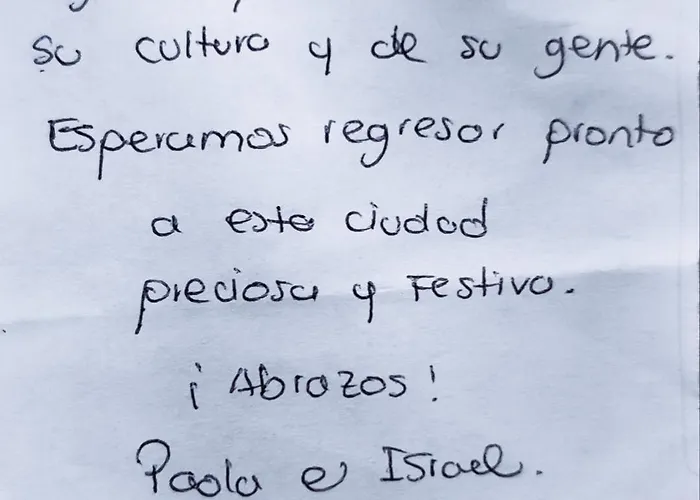 su cultura y de su gente.
Esperamos regresar pronto
a esta ciudad
preciosa y Festiva.
¡Abrazos!
Paola e Israel.